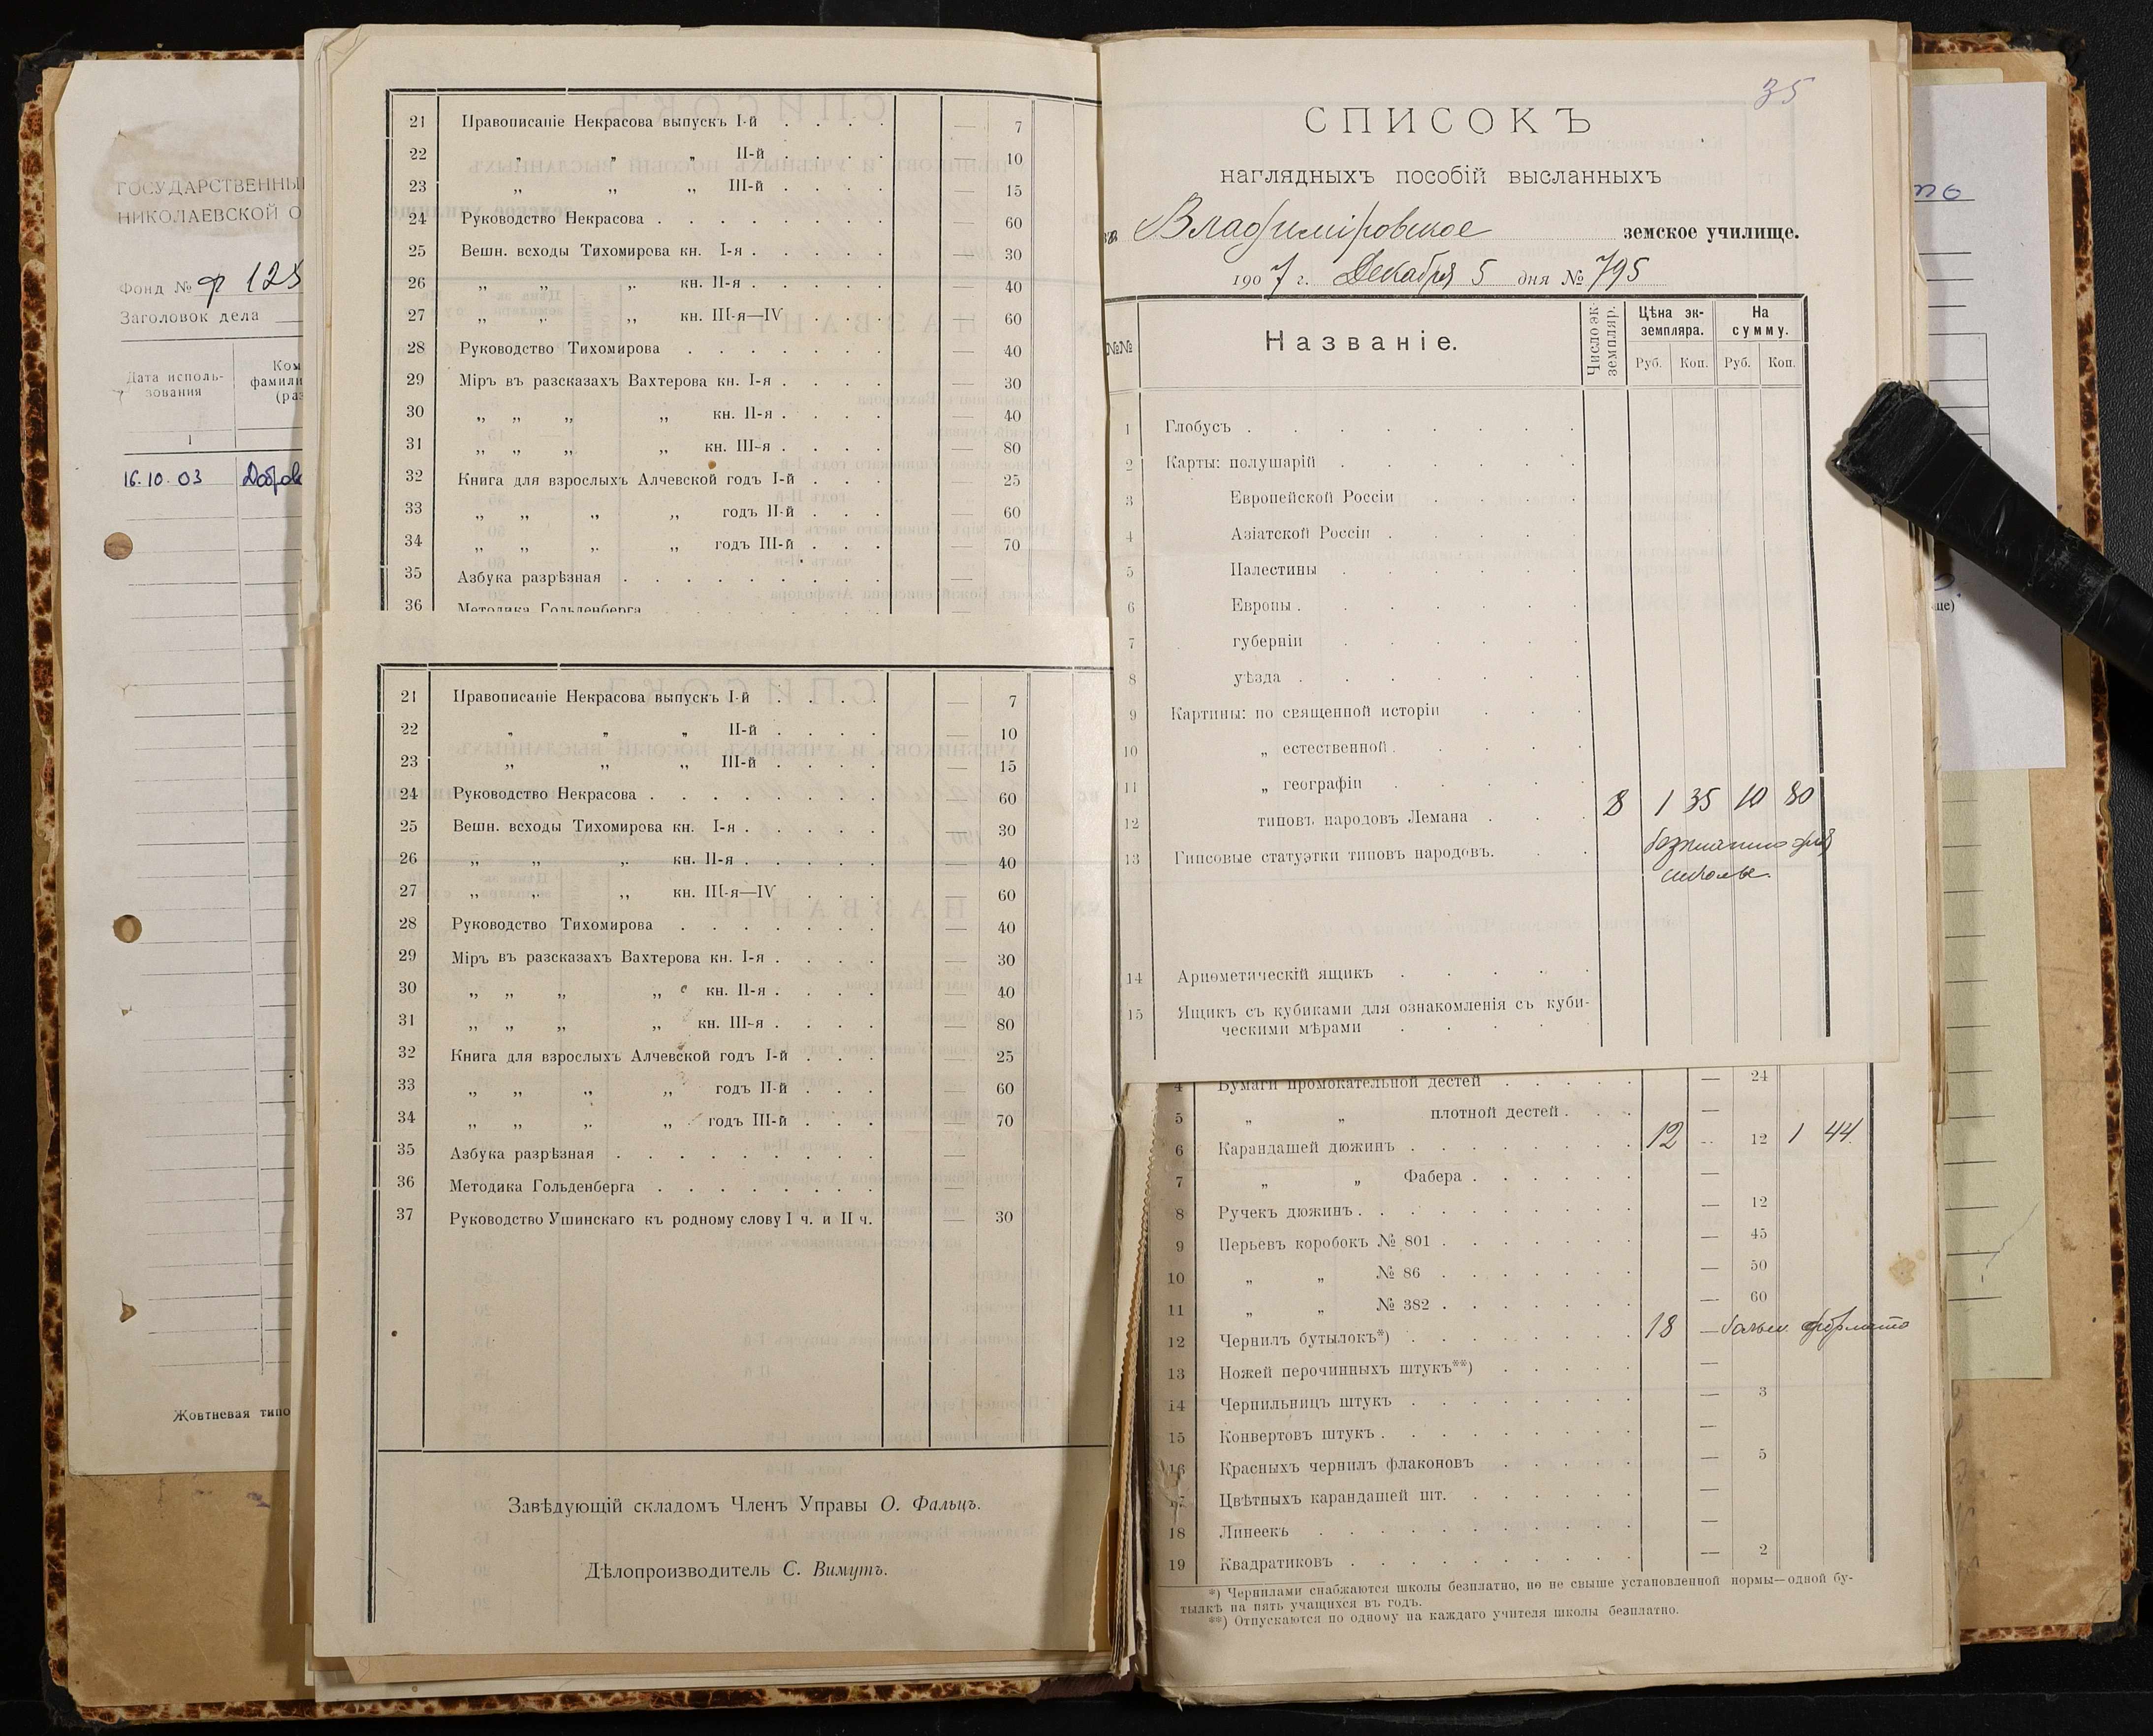 ГОСУДАРСТВЕННЫ
НИКОЛАЕВСКОЙ О
Фонд № ф 128
Заголовок дела
Дата исполь-
зования
Ком
фамили
(раз
1
16.10.03
Жовтневая типо
21 Правописаніе Некрасова выпускъ I-й — 7
22 „ „ „ II-й — 10
23 „ „ „ III-й — 15
24 Руководство Некрасова — 60
25 Вешн. всходы Тихомирова кн. I-я — 30
26 „ „ „ кн. II-я — 40
27 „ „ „ кн. III-я—IV — 60
28 Руководство Тихомирова — 40
29 Міръ въ разсказахъ Вахтерова кн. I-я — 30
30 „ „ „ „ кн. II-я — 40
31 „ „ „ „ кн. III-я — 80
32 Книга для взрослыхъ Алчевской годъ I-й — 25
33 „ „ „ „ годъ II-й — 60
34 „ „ „ „ годъ III-й — 70
35 Азбука разрѣзная —
36 Методика Гольденберга
21 Правописаніе Некрасова выпускъ I-й — 7
22 „ „ „ II-й — 10
23 „ „ „ III-й — 15
24 Руководство Некрасова — 60
25 Вешн. всходы Тихомирова кн. I-я — 30
26 „ „ „ кн. II-я — 40
27 „ „ „ кн. III-я—IV — 60
28 Руководство Тихомирова — 40
29 Міръ въ разсказахъ Вахтерова кн. I-я — 30
30 „ „ „ „ кн. II-я — 40
31 „ „ „ „ кн. III-я — 80
32 Книга для взрослыхъ Алчевской годъ I-й — 25
33 „ „ „ „ годъ II-й — 60
34 „ „ „ „ годъ III-й — 70
35 Азбука разрѣзная —
36 Методика Гольденберга —
37 Руководство Ушинскаго къ родному слову I ч. и II ч. — 30
Завѣдующій складомъ Членъ Управы О. Фальцъ.
Дѣлопроизводитель С. Вимутъ.
35
СПИСОКЪ
наглядныхъ пособій высланныхъ
въ Владиміровское земское училище.
1907 г. Декабря 5 дня № 795
№№
Названіе.
Число эк-
земпляр.
Цѣна эк-
земпляра.
На
сумму.
Руб. Коп. Руб. Коп.
1 Глобусъ
2 Карты: полушарій
3 Европейской Россіи
4 Азіатской Россіи
5 Палестины
6 Европы
7 губерніи
8 уѣзда
9 Картины: по священной исторіи
10 „ естественной
11 „ географіи
12 типовъ народовъ Лемана 8 1 35 10 80
13 Гипсовые статуэтки типовъ народовъ.
школы.
14 Ариѳметическій ящикъ
15 Ящикъ съ кубиками для ознакомленія съ куби-
ческими мѣрами
4 Бумаги промокательной дестей — 24
5 „ „ плотной дестей —
6 Карандашей дюжинъ 12 — 12 1 44
7 „ „ Фабера —
8 Ручекъ дюжинъ — 12
9 Перьевъ коробокъ № 801 — 45
10 „ „ № 86 — 50
11 „ „ № 382 — 60
12 Чернилъ бутылокъ*) 18 — больш. формата
13 Ножей перочинныхъ штукъ**) —
14 Чернильницъ штукъ — 3
15 Конвертовъ штукъ —
16 Красныхъ чернилъ флаконовъ — 5
17 Цвѣтныхъ карандашей шт. —
18 Линеекъ —
19 Квадратиковъ — 2
*) Чернилами снабжаются школы безплатно, но не свыше установленной нормы—одной бу-
тылкѣ на пять учащихся въ годъ.
**) Отпускаются по одному на каждаго учителя школы безплатно.